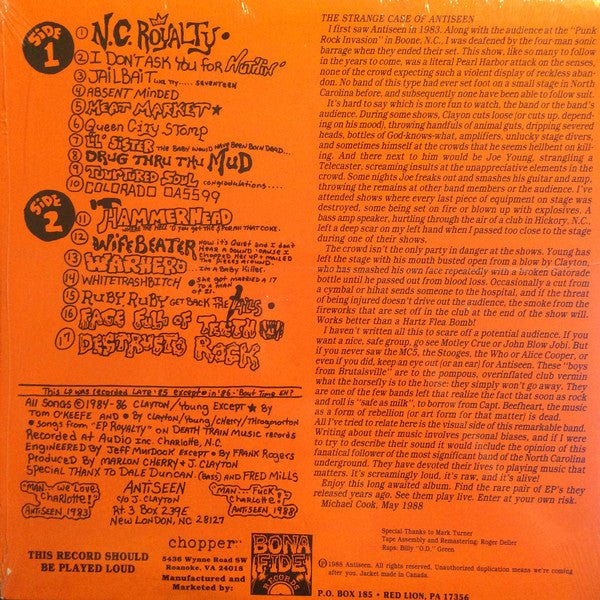 SIDE 1
1 N.C. ROYALTY.
2 I DON'T ASK YOU FOR NUTHIN'
3 JAILBAIT LIKE TRY..... SEVENTEEN
4 ABSENT MINDED
5 MEAT MARKET ★
6 Queen City Stomp
7 LIL' SISTER THE BABY WOULD HAVE BEEN BORN DEAD...
8 DRUG THRU THU MUD
9 TOURTURED SOUL congradulations....
10 COLORADO OA5599
SIDE 2
11 HAMMERHEAD
12 WIFEBEATER Now it's Quiet and I don't
HEAR A SOUND 'CAUSE I
CHOPPED HER UP + MAILED
THE PIECES AROUND.
13 WARHERO ...I'M A BABY KILLER.
14 WHITETRASHBITCH ★ she got married @ 17
TO A MAN
OF 21.
15 RUBY RUBY GET BACK THE PILLS
16 FACE FULL OF TEETH
17 DESTRUCTO ROCK
This LP was recorded LATE '85 except ★ in '86 - 'Bout Time, EH?
All Songs © 1984-86 CLAYTON/Young Except ★ By
Tom O'KEEFE and • By CLAYTON/Young/CHERRY/Throgmorton
• Songs from "EP Royalty" on DEATH TRAIN Music records
Recorded at Audio Inc. Charlotte, N.C.
ENGINEERED By Jeff MURDOCK Except • By FRANK Rogers
PRODUCED By MARLON CHERRY + J. CLAYTON
Special THANX To DALE DUNCAN. (BASS) and FRED MILLS
"MAN.. we Love
Charlotte!"
ANTISEEN, 1983
ANTISEEN
c/o J. CLAYTON
Rt 3 Box 239E
New LONDON, NC 28127
"MAN.... Fuck
Charlotte!"
ANTISEEN, 1988
THIS RECORD SHOULD
BE PLAYED LOUD
chopper
5436 Wynne Road SW
Roanoke, VA 24018
Manufactured and
Marketed by:
BONA
FIDE
RECORDS
THE STRANGE CASE OF ANTISEEN
I first saw Antiseen in 1983. Along with the audience at the "Punk
Rock Invasion" in Boone, N.C., I was deafened by the four-man sonic
barrage when they ended their set. This show, like so many to follow
in the years to come, was a literal Pearl Harbor attack on the senses,
none of the crowd expecting such a violent display of reckless aban-
don. No band of this type had ever set foot on a small stage in North
Carolina before, and subsequently none have been able to follow suit.
It's hard to say which is more fun to watch, the band or the band's
audience. During some shows, Clayon cuts loose (or cuts up, depend-
ing on his mood), throwing handfuls of animal guts, dripping severed
heads, bottles of God-knows-what, amplifiers, unlucky stage divers,
and sometimes himself at the crowds that he seems hellbent on kill-
ing. And there next to him would be Joe Young, strangling a
Telecaster, screaming insults at the unappreciative elements in the
crowd. Some nights Joe freaks out and smashes his guitar and amp,
throwing the remains at other band members or the audience. I've
attended shows where every last piece of equipment on stage was
destroyed, some being set on fire or blown up with explosives. A
bass amp speaker, hurtling through the air of a club in Hickory, N.C.,
left a deep scar on my left hand when I passed too close to the stage
during one of their shows.
The crowd isn't the only party in danger at the shows. Young has
left the stage with his mouth busted open from a blow by Clayton,
who has smashed his own face repeatedly with a broken Gatorade
bottle until he passed out from blood loss. Occasionally a cut from
a cymbal or bihat sends someone to the hospital, and if the threat
of being injured doesn't drive out the audience, the smoke from the
fireworks that are set off in the club at the end of the show will.
Works better than a Hartz Flea Bomb!
I haven't written all this to scare off a potential audience. If you
want a nice, safe group, go see Motley Crue or John Blow Jobi. But
if you never saw the MC5, the Stooges, the Who or Alice Cooper, or
even if you did, keep an eye out (or an ear) for Antiseen. These "boys
from Brutalsville" are to the pompous, overinflated club vermin
what the horsefly is to the horse: they simply won't go away. They
are one of few bands left that realize the fact that soon as rock
and roll is "safe as milk", to borrow from Capt. Beefheart, the music
as a form of rebellion (or art form for that matter) is dead.
All I've tried to relate here is the visual side of this remarkable band.
Writing about their music involves personal biases, and if I were
to try to describe their sound it would include the opinion of this
fanatical follower of the most significant band of the North Carolina
underground. They have devoted their lives to playing music that
matters. It's screamingly loud, it's raw, and it's alive!
Enjoy this long awaited album. Find the rare pair of EP's they
released years ago. See them play live. Enter at your own risk.
Michael Cook, May 1988
Special Thanks to Mark Turner
Tape Assembly and Remastering: Roger Deller
Raps: Billy "O.D." Green
©1988 Antiseen. All rights reserved. Unauthorized duplication means we're coming
after you. Jacket made in Canada.
P.O. BOX 185 • RED LION, PA 17356